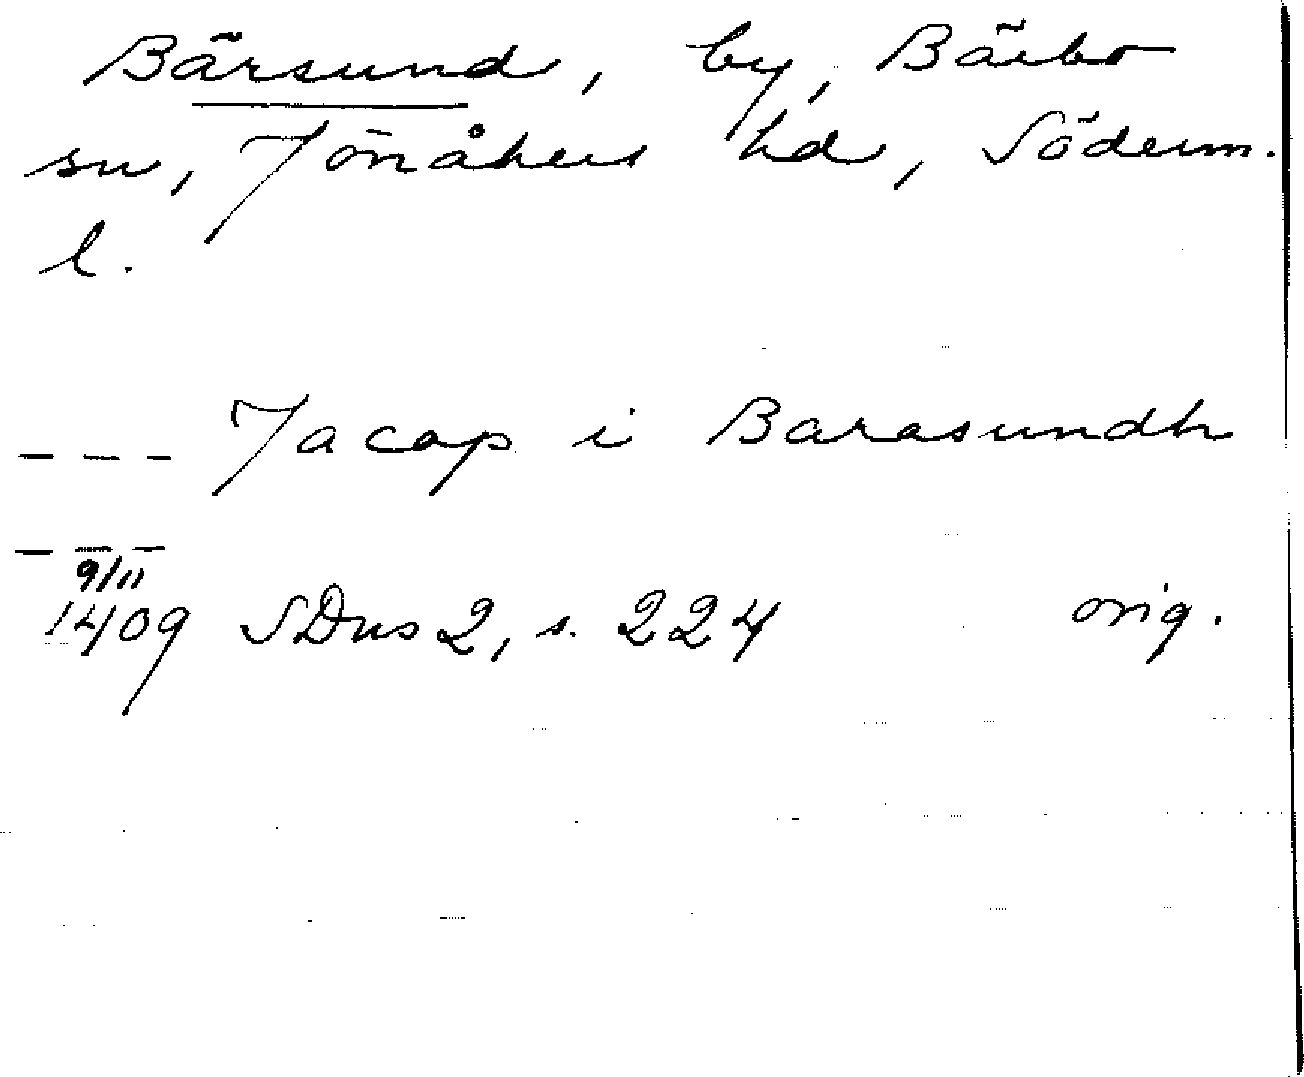 Bärsund, by, Bärbo
sn, Jönåkers hd, Söderm.
l.
--- Jacop i Barasundh
---
9/11
1409 SDns 2, s. 224 orig.